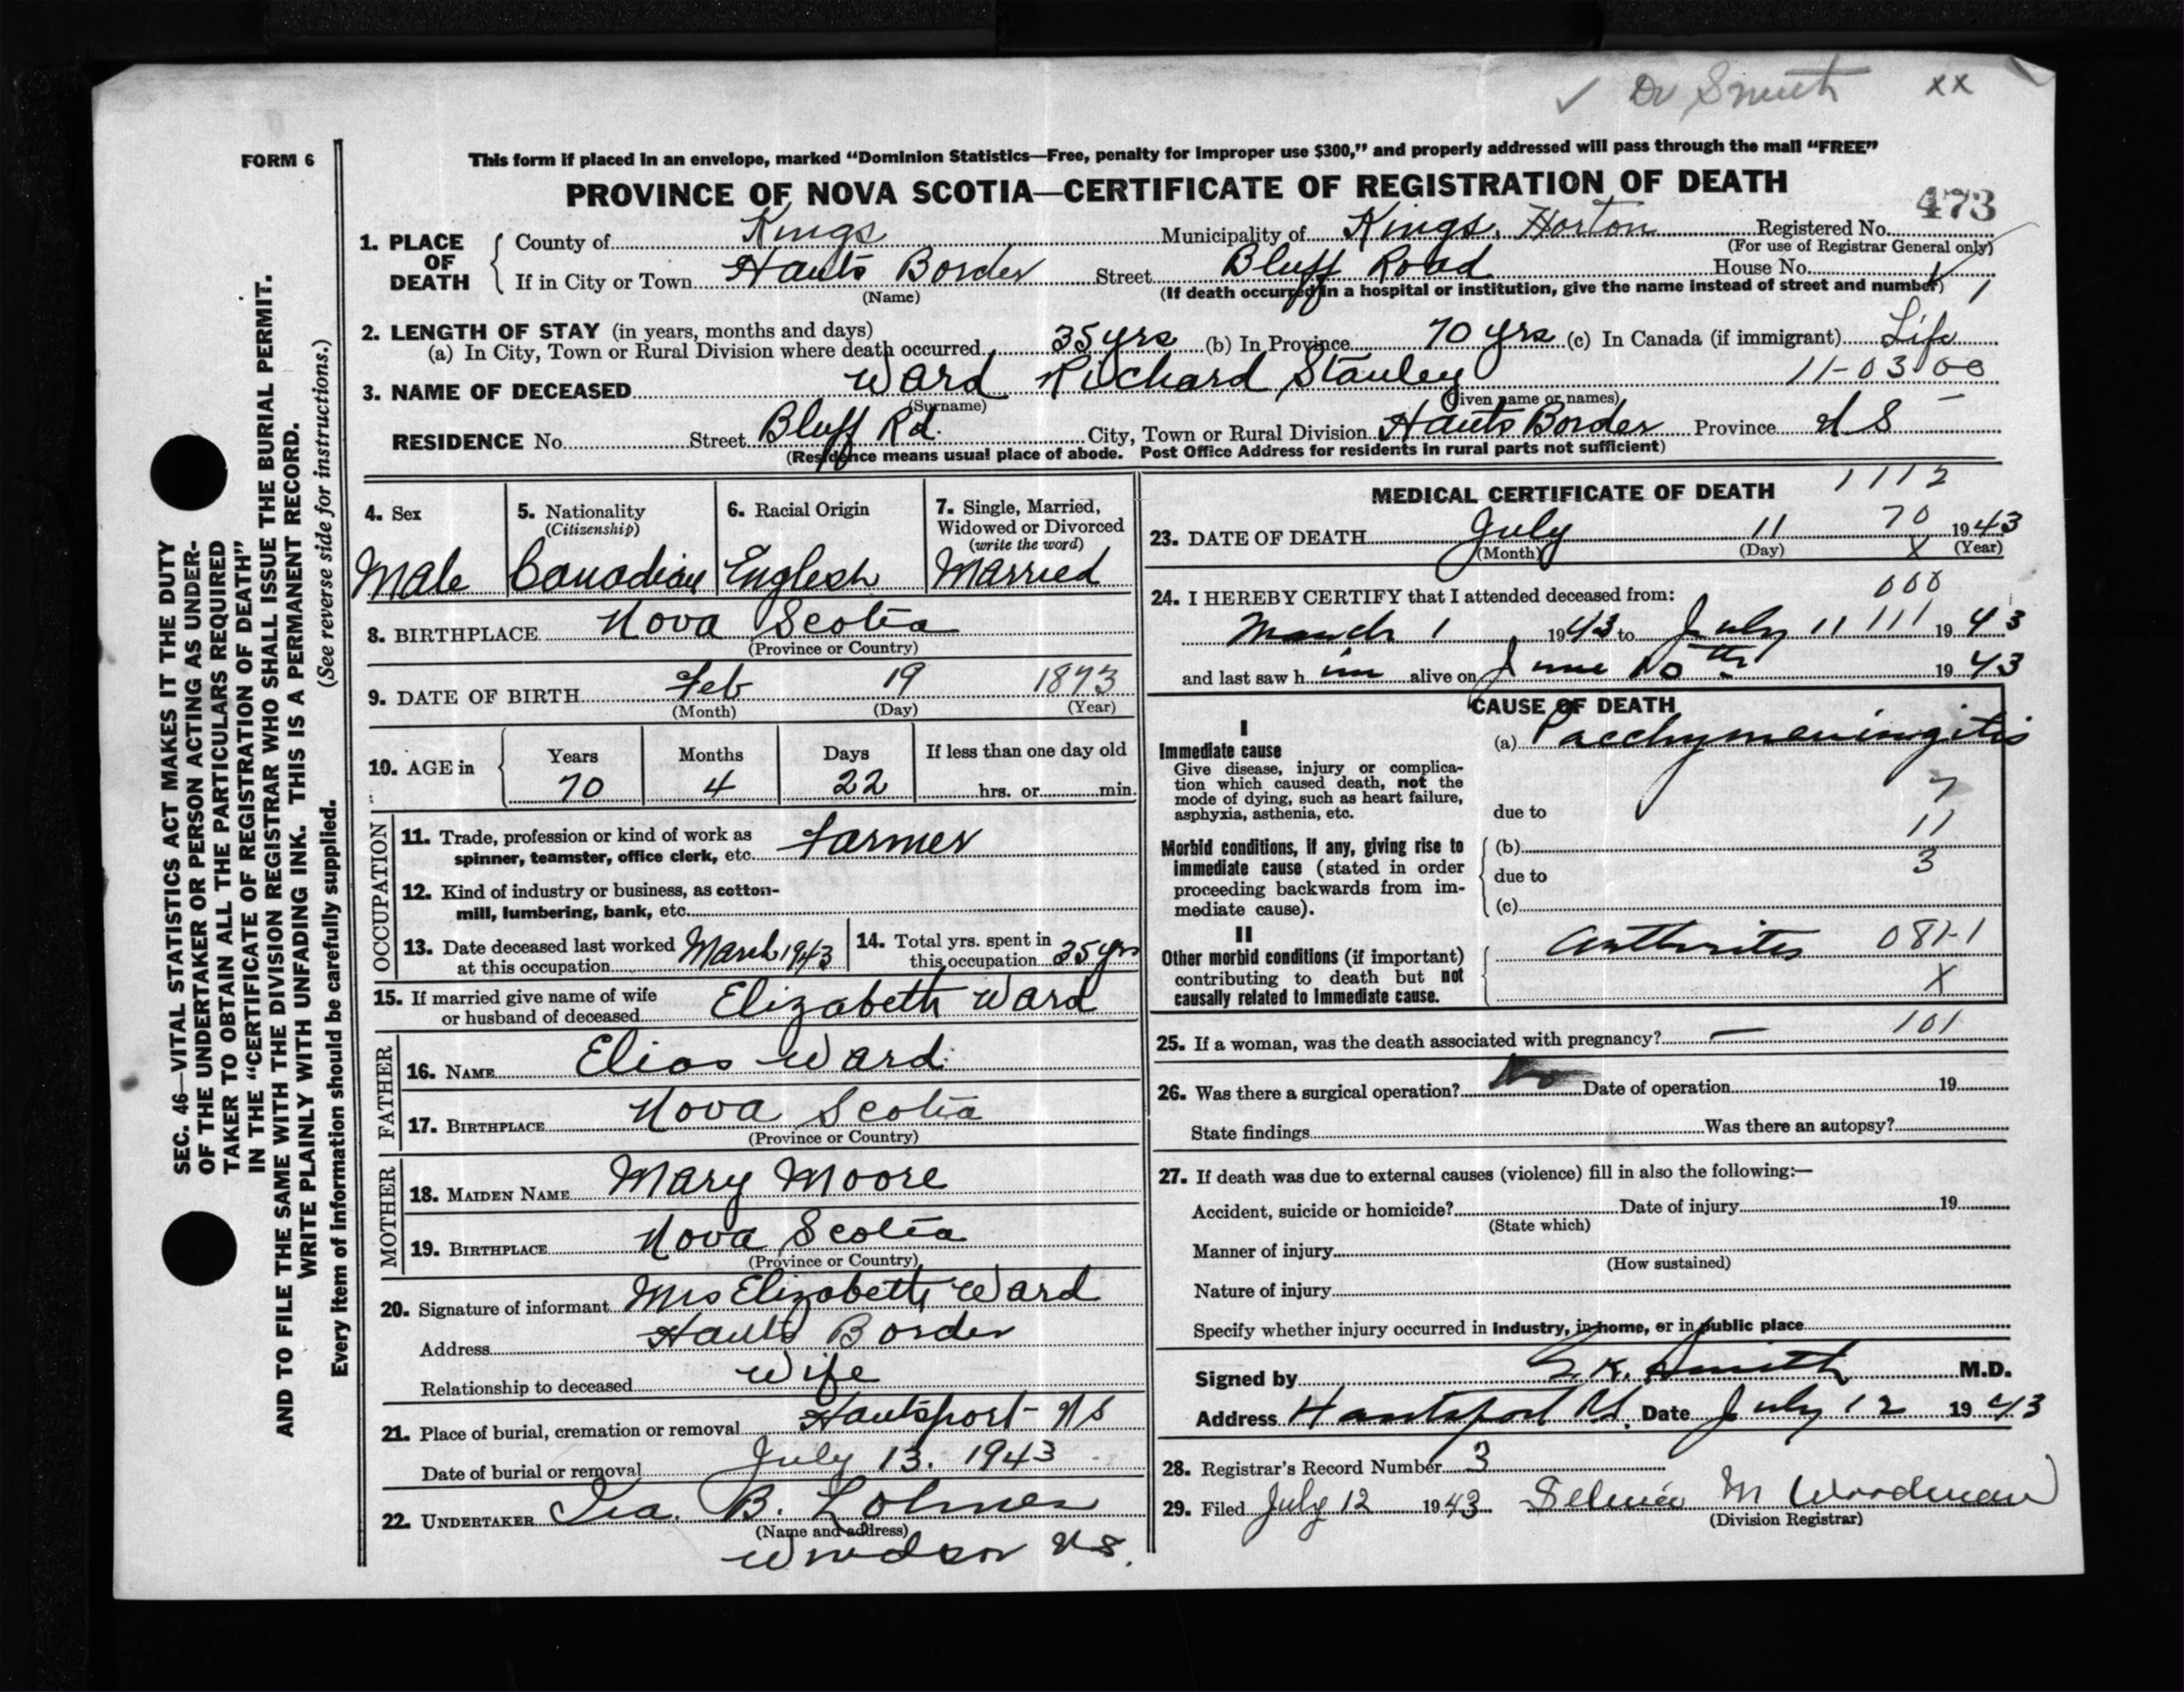 ✓ Dr Smith xx
FORM 6
This form if placed in an envelope, marked "Dominion Statistics—Free, penalty for improper use $300," and properly addressed will pass through the mail "FREE"
PROVINCE OF NOVA SCOTIA—CERTIFICATE OF REGISTRATION OF DEATH
473
1. PLACE OF DEATH
County of Kings Municipality of Kings, Horton Registered No.
(For use of Registrar General only)
If in City or Town Hants Border Street Bluff Road House No.
(Name) (If death occurred in a hospital or institution, give the name instead of street and number)
2. LENGTH OF STAY (in years, months and days)
(a) In City, Town or Rural Division where death occurred 35 yrs (b) In Province 70 yrs (c) In Canada (if immigrant) Life
3. NAME OF DECEASED Ward Richard Stanley 11-03100
(Surname) (Given name or names)
RESIDENCE No. Street Bluff Rd. City, Town or Rural Division Hants Border Province N S
(Residence means usual place of abode. Post Office Address for residents in rural parts not sufficient)
SEC. 46—VITAL STATISTICS ACT MAKES IT THE DUTY
OF THE UNDERTAKER OR PERSON ACTING AS UNDER-
TAKER TO OBTAIN ALL THE PARTICULARS REQUIRED
IN THE "CERTIFICATE OF REGISTRATION OF DEATH"
AND TO FILE THE SAME WITH THE DIVISION REGISTRAR WHO SHALL ISSUE THE BURIAL PERMIT.
WRITE PLAINLY WITH UNFADING INK. THIS IS A PERMANENT RECORD.
Every item of information should be carefully supplied. (See reverse side for instructions.)
4. Sex
Male
5. Nationality
(Citizenship)
Canadian
6. Racial Origin
English
7. Single, Married,
Widowed or Divorced
(write the word)
Married
8. BIRTHPLACE Nova Scotia
(Province or Country)
9. DATE OF BIRTH Feb 19 1873
(Month) (Day) (Year)
10. AGE in
Years Months Days If less than one day old
70 4 22 hrs. or min.
OCCUPATION
11. Trade, profession or kind of work as
spinner, teamster, office clerk, etc. farmer
12. Kind of industry or business, as cotton-
mill, lumbering, bank, etc.
13. Date deceased last worked
at this occupation March 1943
14. Total yrs. spent in
this occupation 35 yrs
15. If married give name of wife
or husband of deceased Elizabeth Ward
FATHER
16. NAME Elias Ward
17. BIRTHPLACE Nova Scotia
(Province or Country)
MOTHER
18. MAIDEN NAME Mary Moore
19. BIRTHPLACE Nova Scotia
(Province or Country)
20. Signature of informant Mrs Elizabeth Ward
Address Hants Border
Relationship to deceased Wife
21. Place of burial, cremation or removal Hantsport N S
Date of burial or removal July 13. 1943
22. UNDERTAKER Ira. B. Lohnes
(Name and address)
Windsor N.S.
MEDICAL CERTIFICATE OF DEATH 1112
23. DATE OF DEATH July 11 70 1943
(Month) (Day) X (Year)
24. I HEREBY CERTIFY that I attended deceased from: 000
March 1 1943 to July 11 111 1943
and last saw him alive on June 10th. 1943
CAUSE OF DEATH
I
Immediate cause
Give disease, injury or complica-
tion which caused death, not the
mode of dying, such as heart failure,
asphyxia, asthenia, etc.
(a) Pacchymeningitis
7
due to
11
Morbid conditions, if any, giving rise to
immediate cause (stated in order
proceeding backwards from im-
mediate cause).
(b)
3
due to
(c)
II
Other morbid conditions (if important)
contributing to death but not
causally related to immediate cause.
Arthritis 081-1
X
25. If a woman, was the death associated with pregnancy? — 101
26. Was there a surgical operation? No Date of operation 19
State findings Was there an autopsy?
27. If death was due to external causes (violence) fill in also the following:—
Accident, suicide or homicide? Date of injury 19
(State which)
Manner of injury
(How sustained)
Nature of injury
Specify whether injury occurred in industry, in home, or in public place
Signed by S. K. Smith M.D.
Address Hantsport N.S. Date July 12 1943
28. Registrar's Record Number 3
29. Filed July 12 1943 Selma M Woodman
(Division Registrar)